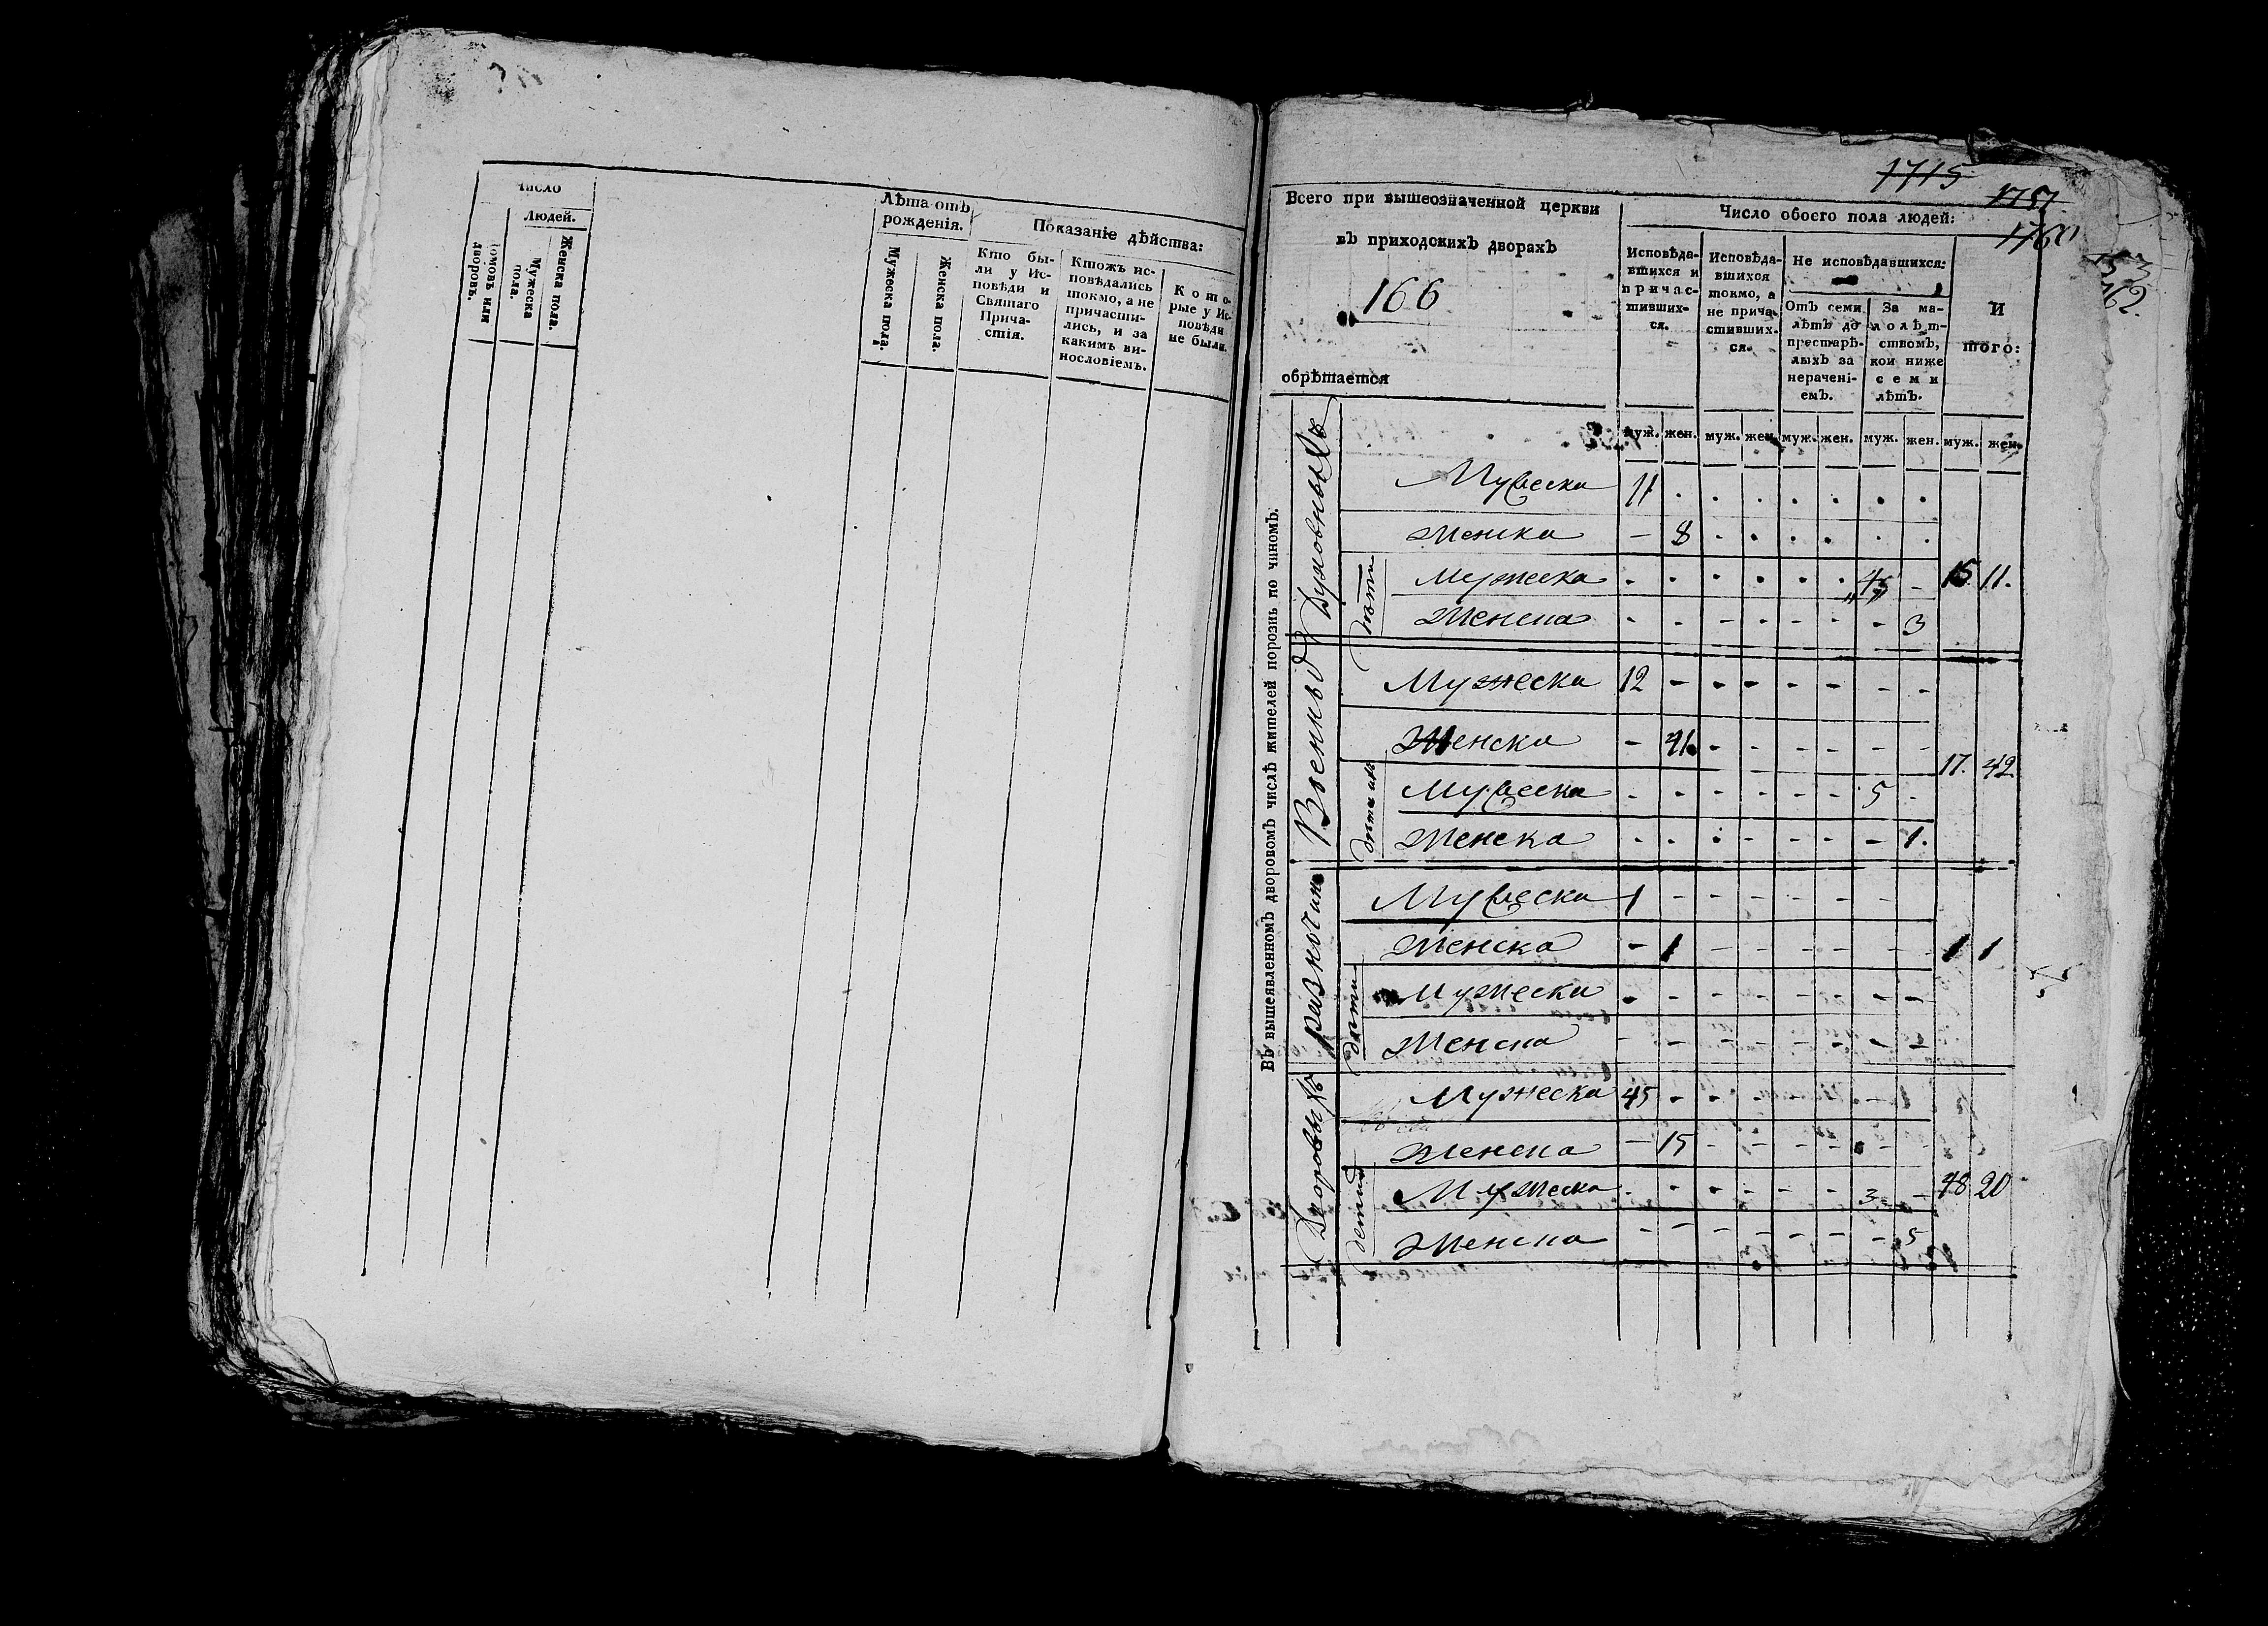 Число
Людей.
домовъ или дворовъ.
Мужеска пола.
Женска пола.
Лѣта отъ рожденія.
Мужеска пола.
Женска пола.
Показаніе дѣйства:
Кто бы-
ли у Ис-
повѣди и
Святаго
Прича-
стія.
Ктожъ ис-
повѣдались
токмо, а не
причасти-
лись, и за
какимъ ви-
нословіемъ.
Кото-
рые у Ис-
повѣди
не были.
1715
1757
1760
Всего при вышеозначенной церкви
въ приходскихъ дворахъ
166
обрѣтается
Число обоего пола людей:
Исповѣда-
вшихся и
причас-
тивших-
ся.
Исповѣда-
вшихся
токмо, а
не прича-
стивших-
ся.
Не исповѣдавшихся:
Отъ семи
лѣтъ до
престарѣ-
лыхъ за
нерачені-
емъ.
За ма-
лолѣт-
ствомъ,
кои ниже
семи
лѣтъ.
И
того:
муж. жен. муж. жен. муж. жен. муж. жен. муж. жен.
Въ вышеявленномъ дворовомъ числѣ жителей порознь по чиномъ.
Духовныхъ
Мужеска 11 . . . . . . .
Женска - 8 . . . . . .
дѣти
Мужеска . . . . . . 4 - 15 11.
Женска - - - - - - - 3
Военныхъ
Мужеска 12 - - - - - - -
Женска - 41 - - - - - -
17. 42
дѣти их
Мужеска - - - - - - 5 -
Женска - - - - - - - 1.
разночин
Мужеска 1 - - - - - -
Женска - 1 - - - - - - 1 1
дѣти
Мужеска - - - - - - - -
Женска - - - - - - - -
Дворовыхъ
Мужеска 45 - - - - - -
Женска - 15 - - - - - -
дети
Мужеска - - - - - - 3 - 48 20
Женска - - - - - - - 5